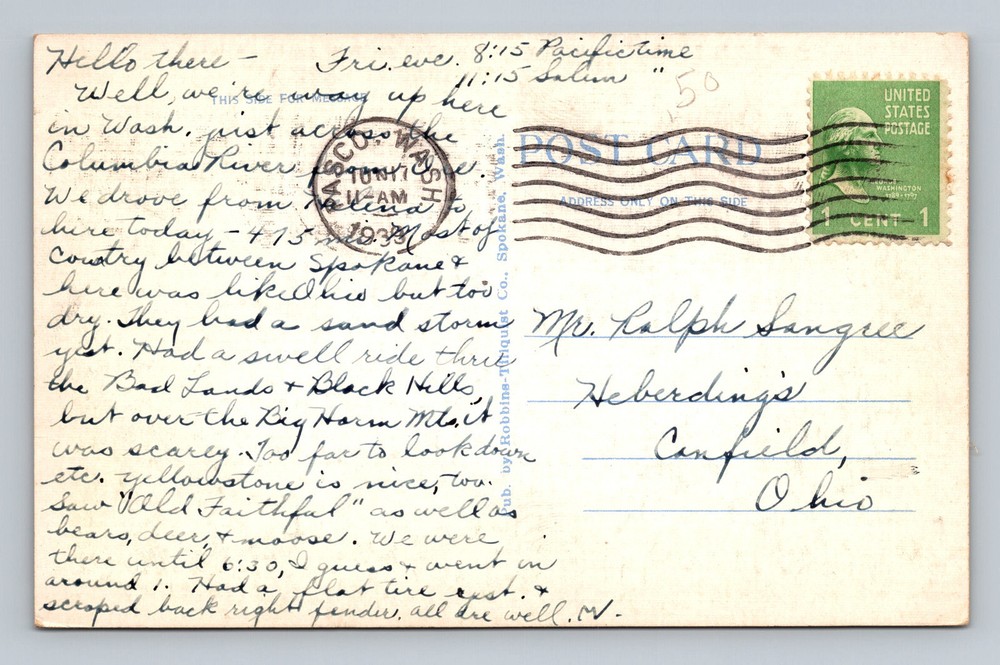 Hello there – Fri. eve. 8:15 Pacific time
11:15 Salem "
50
Well, we're way up here
THIS SIDE FOR MESSAGE
in Wash. just across the
Columbia River from Ore.
We drove from Helena to
here today – 475 mi. Most of
country between Spokane &
here was like Ohio but too
dry. They had a sand storm
yest. Had a swell ride thru
the Bad Lands & Black Hills,
but over the Big Horn Mts. it
was scarey. Too far to look down
etc. Yellowstone is nice, too.
Saw "Old Faithful" as well as
bears, deer, & moose. We were
there until 6:30, I guess & went on
around 1. Had a flat tire &
scraped back right fender. all are well.
PASCO, WASH
JUN 17
11 AM
Pub. by Robbins-Tillquist Co., Spokane, Wash.
POST CARD
ADDRESS ONLY ON THIS SIDE
UNITED
STATES
POSTAGE
WASHINGTON
1 CENT 1
Mr. Ralph Sangree
Heberding's
Canfield,
Ohio